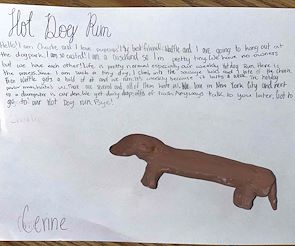 Hot Dog Run
Hello! I am Charlie and I love popcorn! My best friend Waffle and I are going to hang out at
the dog park. I am so excited! I am a dachshund so I'm pretty tiny. We have no owners
but we have each other. Life is pretty normal especially our weekly hotdog run. Here is
the process. Since I am such a tiny dog, I climb into the sausage hold and I bite off the chain.
Then Waffle gets a hold of it and we run. It's weekly because it is twice a week. The hotdog
are several and all of them hate us. We live in New York City and next
to a dumpster in our den. We get daily drop offs of trash. Anyways talk to you later, Got to
go to our Hot Dog run. Bye!
Charlie